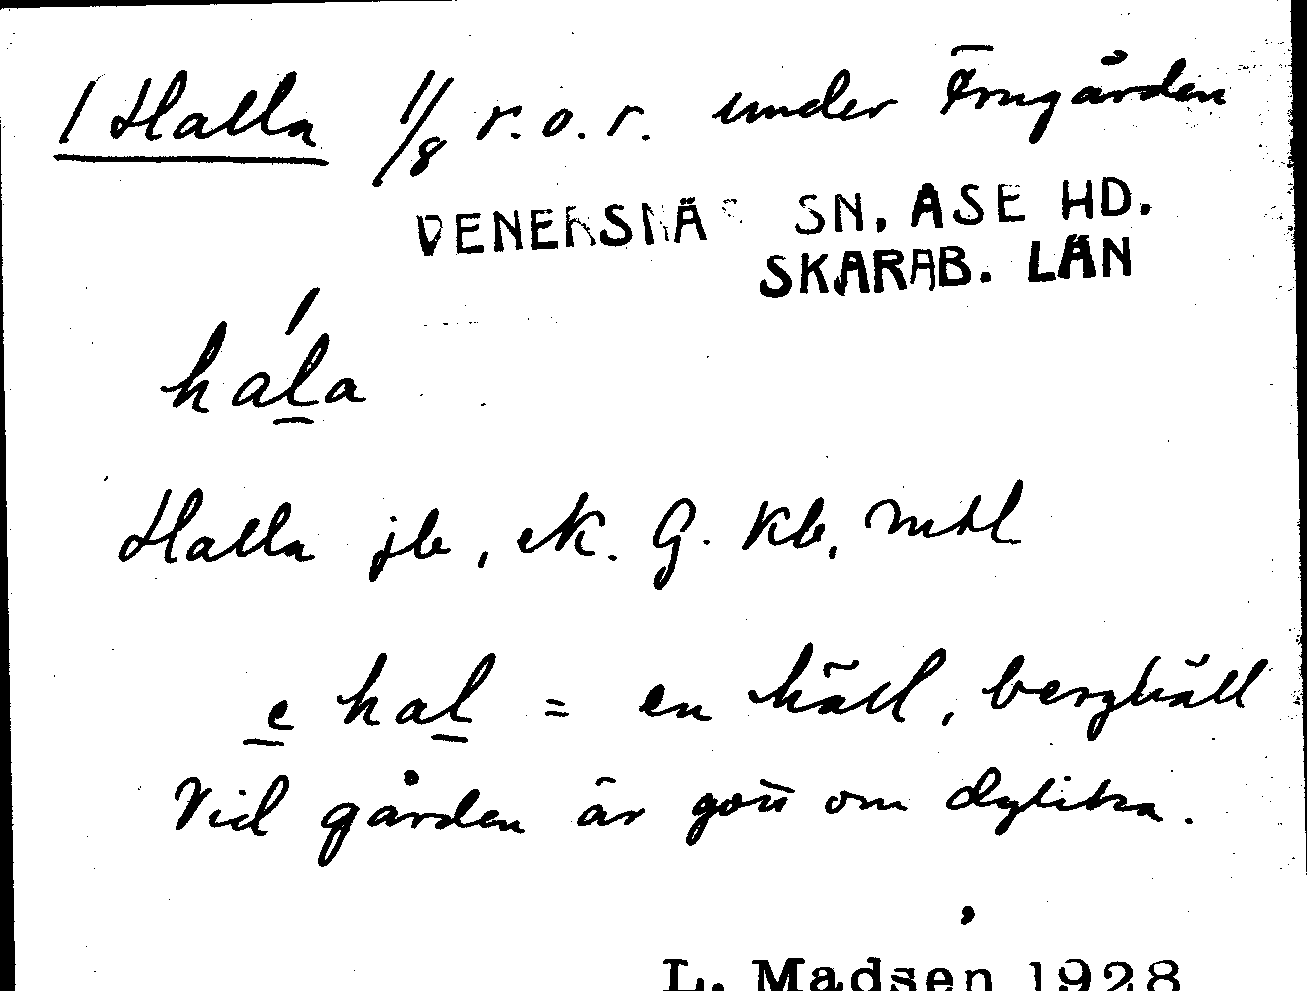 1 Halla 1/8 r. o. r. under Frugården
VENERSNÄS SN. ASE HD.
SKARAB. LÄN
háḻa
Halla jb, ek. G. Kb, mtl
e̱ haḻ = en häll, berghäll
Vid gården är gott om dylika.
L. Madsen 1928